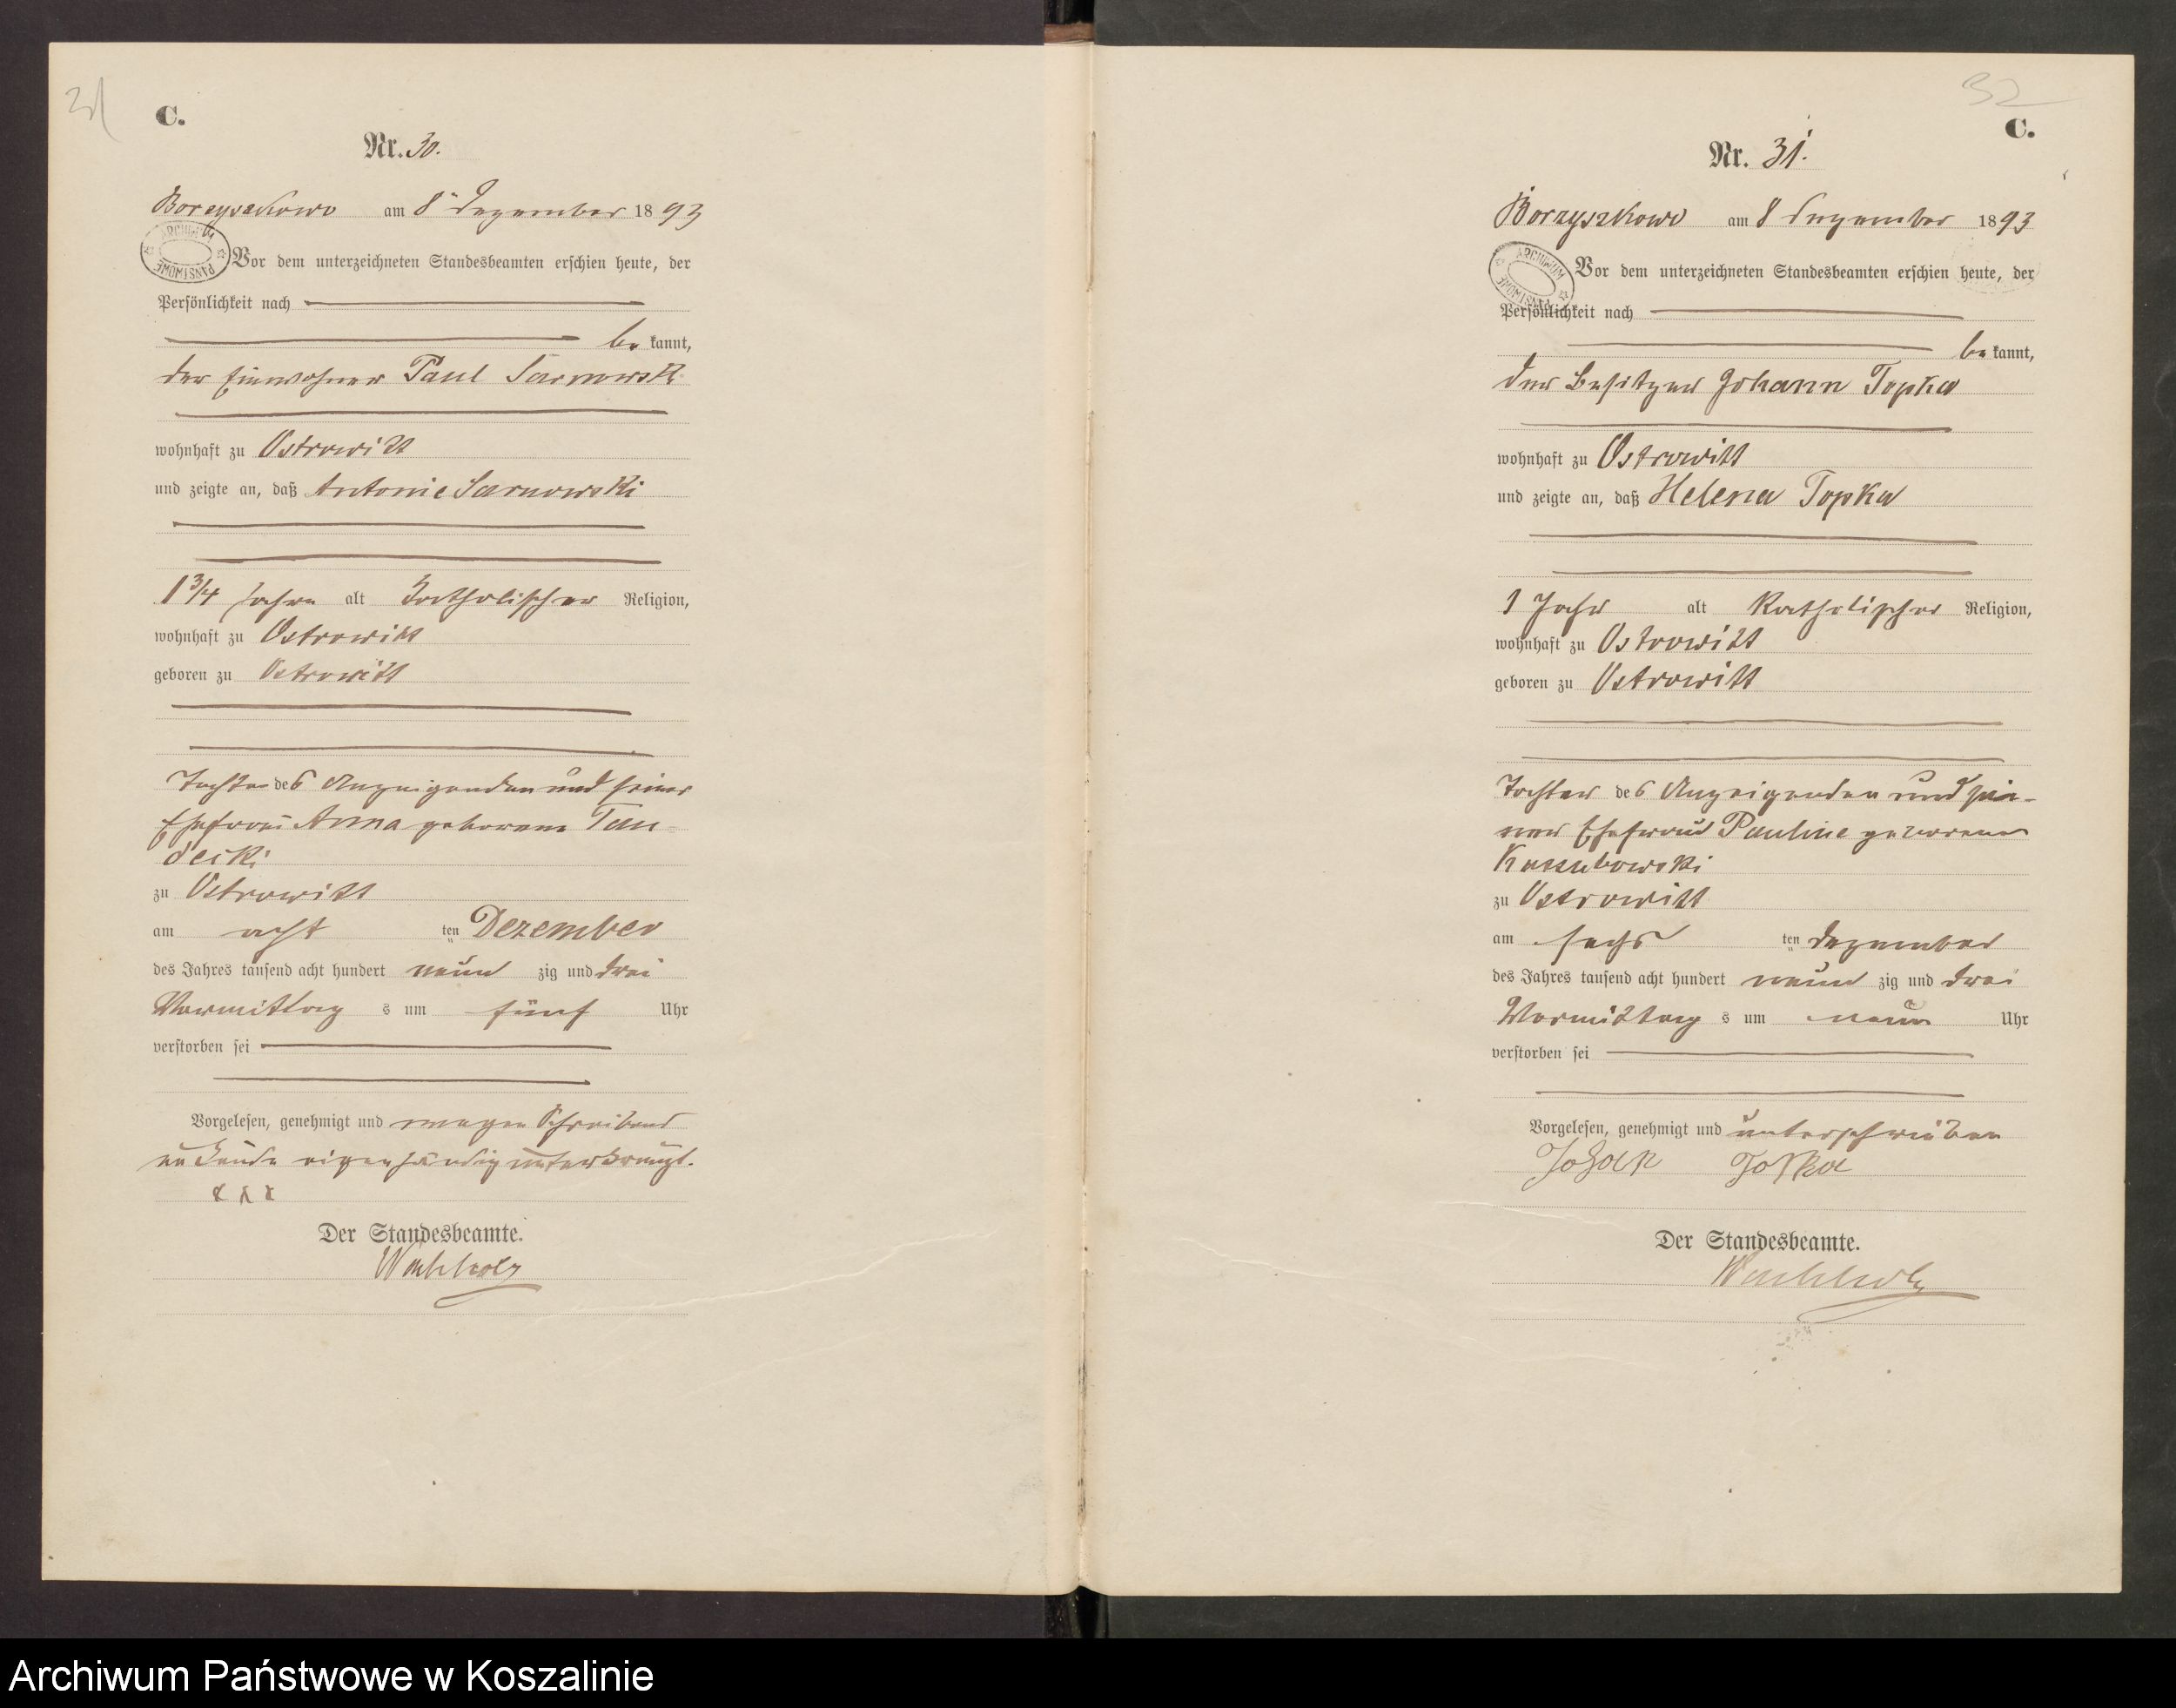 31
C.
Nr. 30.
Borzyszkowo am 8 Dezember 1893
ARCHIWUM PAŃSTWOWE
Vor dem unterzeichneten Standesbeamten erschien heute, der
Persönlichkeit nach
be kannt,
der Einwohner Paul Sarnowski
wohnhaft zu Ostrowitt
und zeigte an, daß Antonie Sarnowski
1 3/4 Jahre alt katholischer Religion,
wohnhaft zu Ostrowitt
geboren zu Ostrowitt
Tochter des Anzeigenden und seiner
Ehefrau Anna geborene
zu Ostrowitt
am acht ten Dezember
des Jahres tausend acht hundert neun zig und drei
Vormittag s um fünf Uhr
verstorben sei
Vorgelesen, genehmigt und wegen Schreibens
unkunde eigenhändig unterkreuzt.
x x x
Der Standesbeamte.
Wachholz
32
C.
Nr. 31.
Borzyszkowo am 8 Dezember 1893
ARCHIWUM PAŃSTWOWE
Vor dem unterzeichneten Standesbeamten erschien heute, der
Persönlichkeit nach
be kannt,
der Besitzer Johann Topka
wohnhaft zu Ostrowitt
und zeigte an, daß Helena Topka
1 Jahr alt katholischer Religion,
wohnhaft zu Ostrowitt
geboren zu Ostrowitt
Tochter des Anzeigenden und sei-
ner Ehefrau Pauline geborene
Kaszubowski
zu Ostrowitt
am sechs ten Dezember
des Jahres tausend acht hundert neun zig und drei
Vormittag s um neun Uhr
verstorben sei
Vorgelesen, genehmigt und unterschrieben
Johan Topka
Der Standesbeamte.
Wachholz
Archiwum Państwowe w Koszalinie